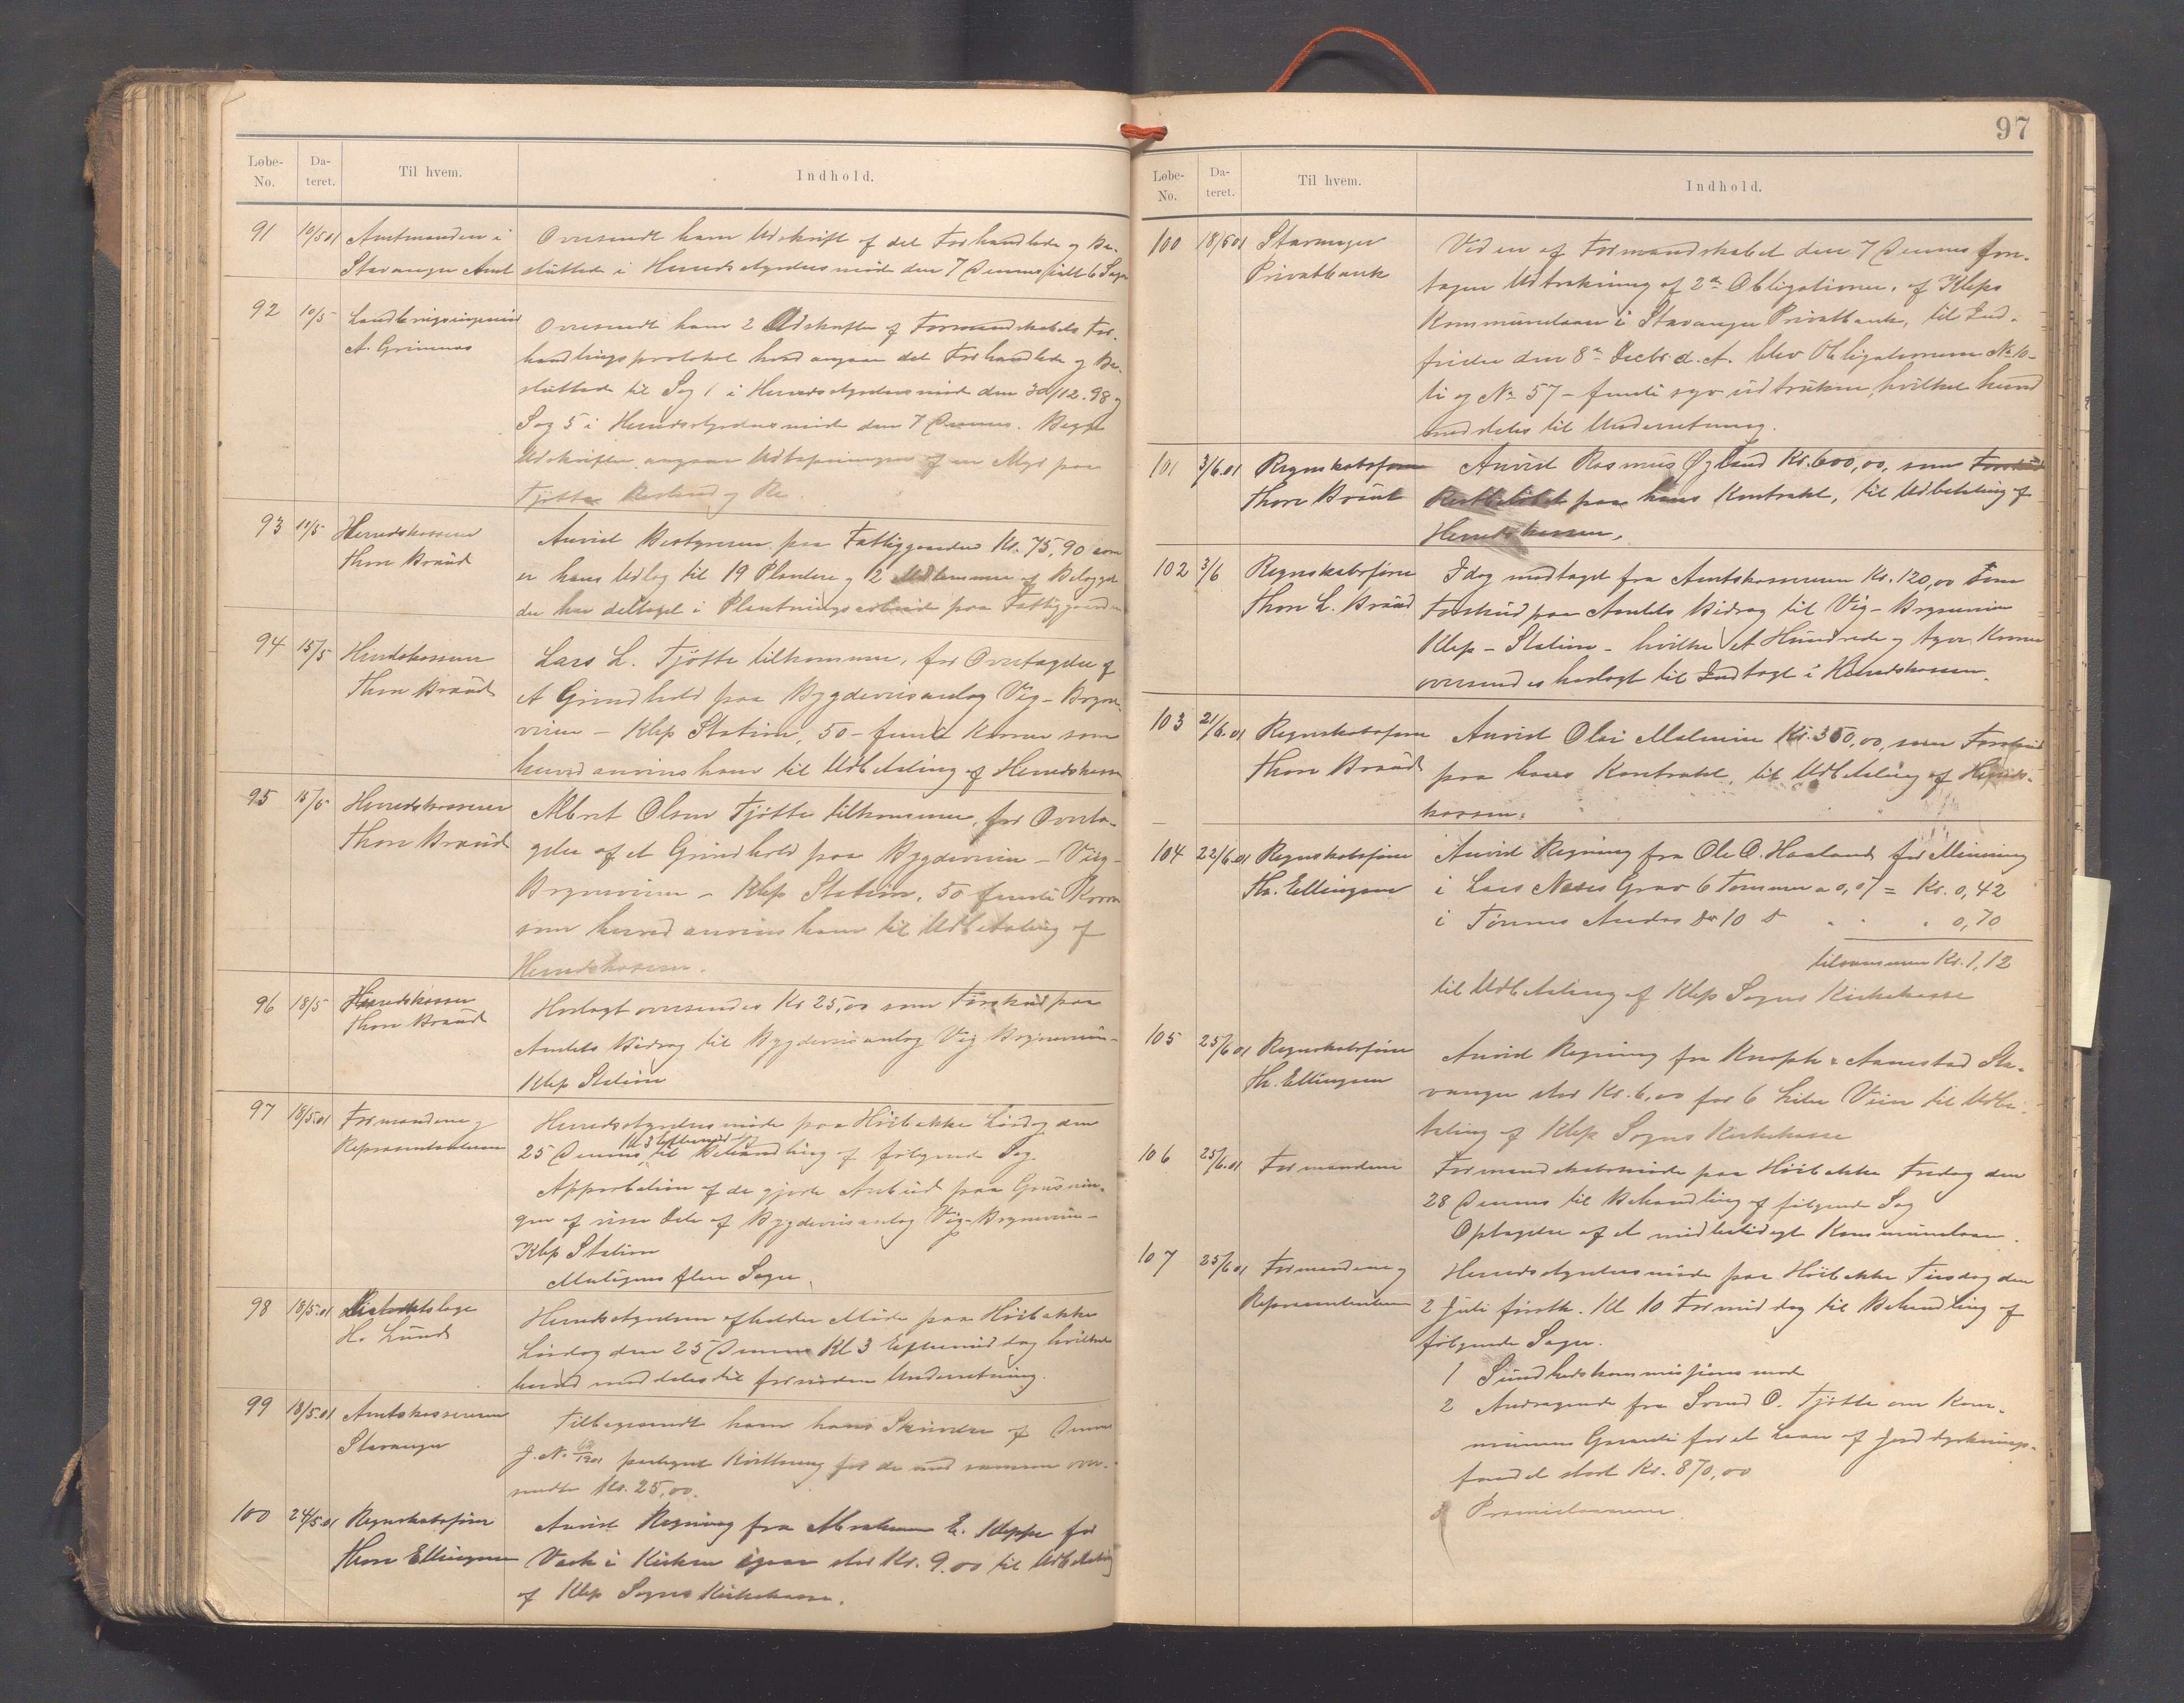 Løbe-No.
Da-teret.
Til hvem.
Indhold.
91 10/5 01 Amtmanden i Oversendt ham Udskrift af det Forhandlede og Be-
Stavanger Amt sluttede i Herredsstyrelsesmöde den 7 Dennes ialt 6 Sager
92 10/5 Landbrugsingeniør
A. Grimnæs
Oversendt ham 2 Udskrifter af Formandskabets For-
handlingsprotokol hvad angaar det Forhandlede og Be-
sluttede til Sag 1 i Herredsstyrelsesmöde den 30/12. 98 og
Sag 5 i Herredsstyrelsesmöde den 7 Dennes. Begge
Udskrifter angaar Udtapningen af en Myr paa
Tjötta og Re.
93 11/5 Herredskasserer
Thore Braud
Anvist Bestyreren paa Fattiggaarden Kr. 75,90 som
er hans Udlæg til 19 Plantere og 2 Medlemmer af
der har deltaget i Plantningsarbeide paa Fattiggaarden
94 15/5 Herredskasserer
Thore Braud
Lars L. Tjötta tilkommer, for Overtagelse af
et Grindhold paa Bygdeveisanlæg Vig - Bryne-
veien - Klep Station, 50 - femti Kroner som
herved anvises ham til Udbetaling af Herredskassen
95 15/5 Herredskasserer
Thore Braud
Albret Olsen Tjötta tilkommer, for Overta-
gelse af et Grindhold paa Bygdeveien - Vig -
Bryneveien - Klep Station, 50 femti Kroner
som herved anvises ham til Udbetaling af
Herredskassen.
96 18/5 Herredskasserer
Thore Braud
Hoslagt oversendes Kr 25,00 som Forskud paa
Amtets Bidrag til Bygdeveisanlæg Vig Bryneveien -
Klep Station
97 18/5.01 Formændene og
Repræsentanterne
Herredsstyrelsesmöde paa Höibakke Lördag den
25 Dennes Kl 3 Eftermidag til Behandling af fölgende Sag.
Approbation af de gjorte Anbud paa Grusnin-
gen af visse Dele af Bygdeveisanlæg Vig-Bryneveien -
Klep Station
Muligens flere Sager.
98 18/5.01 Distriktslæge
H. Lund
Herredsstyrelsen afholder Möde paa Höibakke
Lördag den 25 Dennes Kl 3 Eftermiddag hvilket
herved meddeles til fornöden Underretning.
99 18/5.01 Amtskassereren
Stavanger
Tilbagesendt ham hans Skrivelse af Dennes
J. No. /1901 paategnet Kvittering for de med samme over-
sendte Kr. 25,00.
100 24/5.01 Regnskabsförer
Thore Ellingsen
Anvist Regning fra Abraham E. Kleppe for
Vask i Kirken stor Kr. 9.00 til Udbetaling
af Klep Sogns Kirkekasse.
97
Løbe-No.
Da-teret.
Til hvem.
Indhold.
100 18/5 01 Stavanger
Privatbank
Ved en af Formandskabet den 7 Dennes fore-
tagen Udtrækning af 2de Obligationer, af Kleps
Kommunelaan i Stavanger Privatbank, til Ind-
frielse den 8de Decbr. d. A. blev Obligationerne No 10 -
ti og No 57 - femti syv udtrukne, hvilket herved
meddeles til Underretning.
101 3/6.01 Regnskabsförer
Thore Braut
Anvist Rasmus Öyland Kr. 600,00, som Forskud
Restbelöbet paa hans Kontrakt, til Udbetaling af
Herredskassen.
102 3/6 Regnskabsförer
Thore L. Braud
Idag modtaget fra Amtskassereren Kr. 120,00 som
Forskud paa Amtets Bidrag til Vig - Bryneveien
Klep - Station - hvilke et Hundrede og tyve Kroner
oversendes hoslagt til Indtægt i Herredskassen.
103 21/6.01 Regnskabsförer
Thore Braud
Anvist Olai Malmin Kr. 350,00, som Forskud
paa hans Kontrakt, til Udbetaling af Herreds-
kassen.
104 22/6.01 Regnskabsförer
Th. Ellingsen
Anvist Regning fra Ole O. Haaland for Minning
i Lars Næses Grav 6 Tommer a 0,07 = Kr. 0,42
i Tönnes Andas 10 " " 0,70
tilsammen Kr. 1,12
til Udbetaling af Klep Sogns Kirkekasse
105 25/6 01 Regnskabsförer
Th. Ellingsen
Anvist Regning fra Knoph & Aanestad Sta-
vanger stor Kr. 6,00 for 6 Liter Vin til Udbe-
taling af Klep Sogns Kirkekasse
106 25/6.01 Formændene
Formandskabsmöde paa Höibakke Fredag den
28 Dennes til Behandling af fölgende Sag
Optagelse af et midlertidigt Kommunelaan.
107 25/6 01 Formændene og
Repræsentanterne
Herredsstyrelsesmöde paa Höibakke Tirsdag den
2 Juli förstk. Kl 10 Formiddag til Behandling af
fölgende Sager.
1 Sundhedskommissionsmöde
2 Andragende fra Svend O. Tjötta om Kom-
munens Garanti for et Laan af Jorddyrknings-
fondet stort Kr. 870,00
3 Præmielaanene